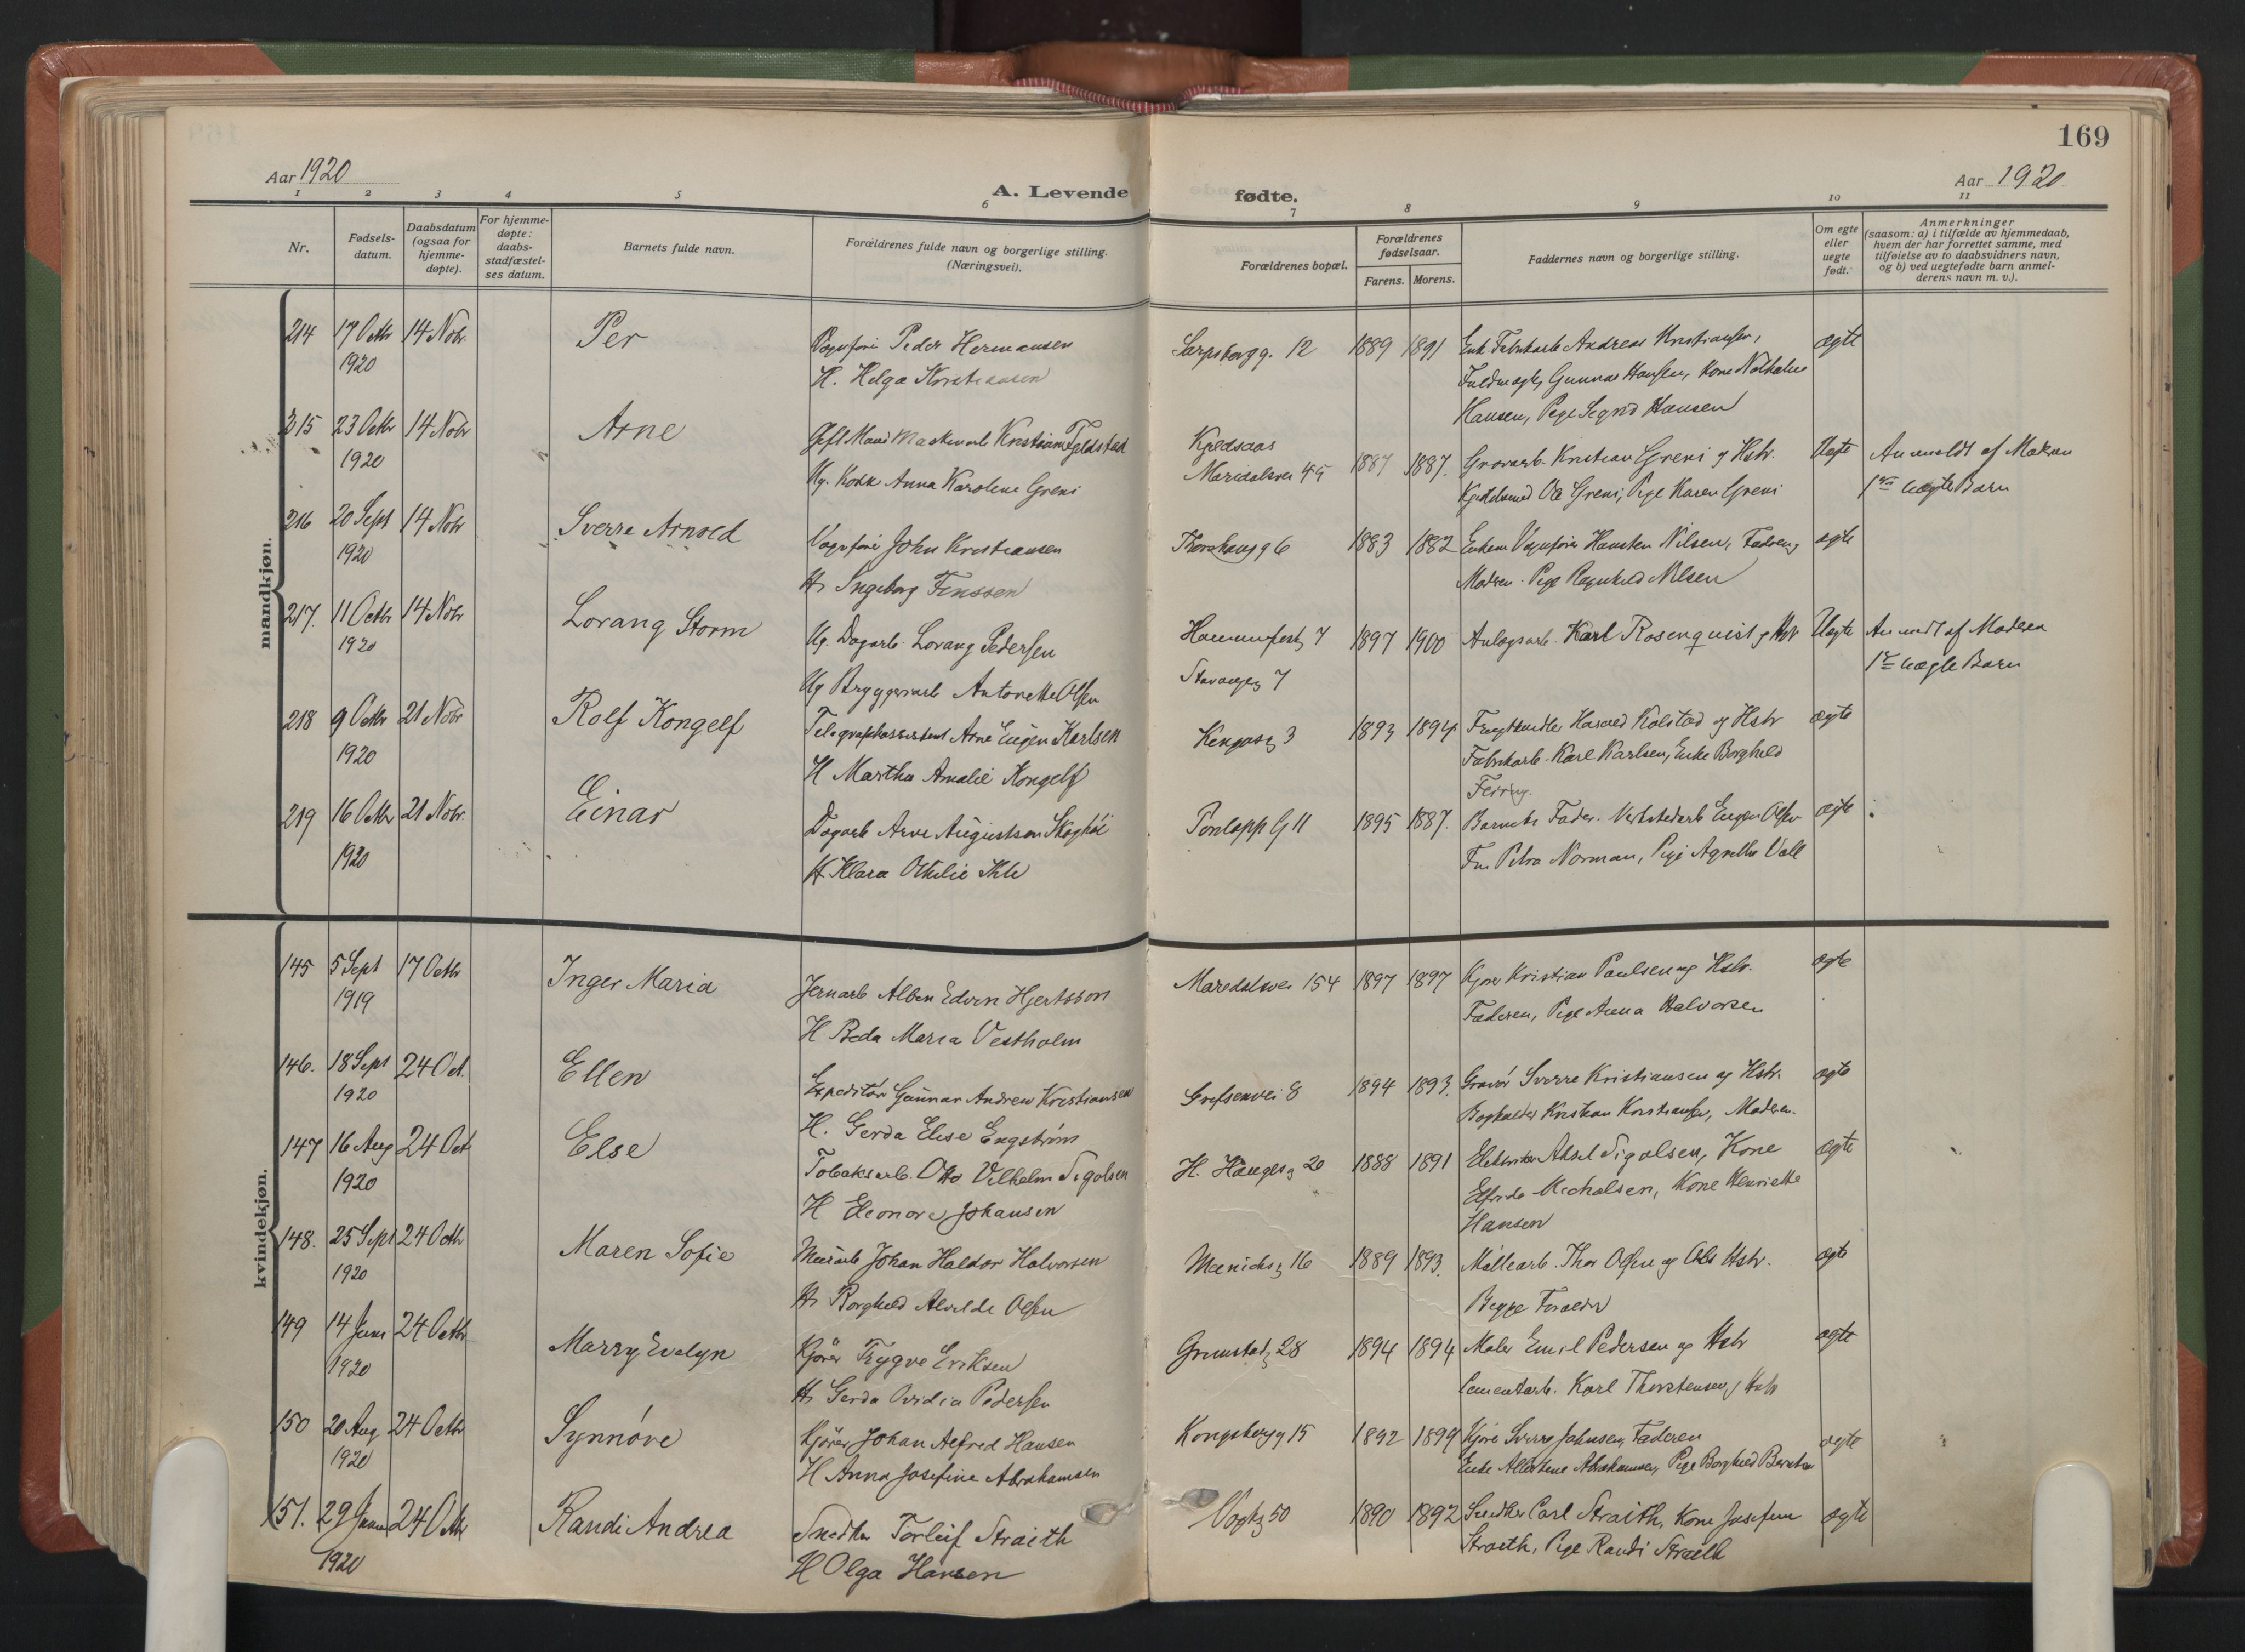 169
Aar 1920
Aar 1920
A. Levende fødte.
1 2 3 4 5 6 7 8 9 10 11
Nr.
Fødsels-
datum.
Daabsdatum
(ogsaa for
hjemme-
døpte).
For hjemme-
døpte:
daabs-
stadfæstel-
ses datum.
Barnets fulde navn.
Forældrenes fulde navn og borgerlige stilling.
(Næringsvei).
Forældrenes bopæl.
Forældrenes
fødselsaar.
Farens. Morens.
Faddernes navn og borgerlige stilling.
Om egte
eller
uegte
født.
Anmerkninger
(saasom: a) i tilfælde av hjemmedaab,
hvem der har forrettet samme, med
tilføielse av to daabsvidners navn,
og b) ved uegtefødte barn anmel-
derens navn m. v.).
mandkjøn.
214 17 Octbr 14 Nobr. Per Peder Hermansen Sarpsborgg. 12 1889 1891 Andreas Kristiansen, ægte
1920 H. Helga Kristiansen Gunnar Hansen, Kone Nathalie
Hansen, Pige Sigrid Hansen
215 23 Octbr 14 Nobr Arne Kristian Fjeldstad Kjelsaas
1920 Ug. Kokk Anna Karoline Greni Maridalsvei 45 1887 1887. Grovarb. Kristian Greni og Hstr. Uegte Anmeldt af Moderen
Ole Greni, Pige Karen Greni 1ste uægte Barn
216 20 Sept 14 Nobr Sverre Arnold Vognfører John Kristiansen Thorshaugg 6 1883 1882 Nilsen, Faderen, ægte
1920 H. Ingeborg Moderen. Pige Ragnhild Nilsen
217. 11 Octbr 14 Nobr Lorang Storm Ug. Dagarb. Lorang Pedersen Hammerfestg 7 1897 1900 Anlægsarb. Karl Rosenquist og Hstr Uegte Anmeldt af Moderen
1920 Ug Bryggeriarb Antonette Olsen Stavangerg 7 1ste uægte Barn
218 9 Octbr 21 Nobr Rolf Kongelf Telegrafassistent Arne Eugen Karlsen 3 1893 1894 Frugthandler Harald Kolstad og Hstr ægte
1920 H Martha Amalie Kongelf Fabrikarb. Karl Karlsen, Enke Borghild
219 16 Octbr 21 Nobr. Einar Dagarb Arne Augustson G 11 1895 1887. Barnets Fader. Verkstedarb Eugen Olsen ægte
1920 H Klara Othilie Petra Norman, Pige Agnethe Vall
kvindekjøn.
145 5 Sept 17 Octbr Inger Maria Jernarb Albin Edvin Hjertsson Maridalsvei 154 1897 1897 Kjører Kristian Paulsen og Hstr. ægte
1919 H Beda Maria Vestholm Faderen, Pige Anna Halvorsen
146. 18 Sept 24 Oct. Ellen Expeditør Gunnar Andrew Kristiansen Grefsenvei 8 1894 1893. Gravør Sverre Kristiansen og Hstr. ægte
1920 H. Gerda Elise Engström Bogholder Kristian Kristiansen, Moderen.
147 16 Aug 24 Oct Else Tobaksarb. Otto Vilhelm Sigolsen H. Haugesg 20 1888 1891 Elektriker Aksel Sigolsen, Kone ægte
1920 H Eleonore Johansen Elfrida Michalsen, Kone Henriette
Hansen
148. 25 Sept 24 Octbr Maren Sofie Murarb Johan Haldor Halvorsen 16 1889 1893. Møllearb. Thor Olsen og Hstr. ægte
1920 H. Borghild Alvilde Olsen Begge Forældre
149 14 Juni 24 Octbr Marry Evelyn Kjører Trygve Eriksen Grimstadg 28 1894 1894 Maler Emil Pedersen og Hstr ægte
1920 H. Gerda Ovidia Pedersen Cementarb. Karl Thorstensen og Hstr
150 20 Aug 24 Octbr Synnøve Kjører Johan Alfred Hansen Kongsbergg 15 1892 1899 Kjører Sverre Johnsen, Faderen ægte
1920 H Anna Josefine Abrahamsen Enke Abrahamsen, Pige Borghild
151. 29 Juni 24 Octbr Randi Andrea Snedker Torleif Straith Vogtsg 50 1890 1892 Snedker Carl Straith, Kone Josefine ægte
1920 H Olga Hansen Straith, Pige Randi Straith